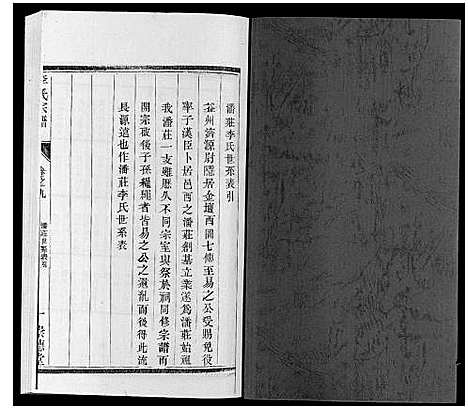 潘莊李氏世系表引
益州濟源尉隱居金壇西圊七傳至易之公受賜免役
率子漢臣卜居邑西之潘莊創基立業遂為潘莊始祖
我潘莊一支雖歷久不同宗室與祭於祠同修宗譜而
開宗啟後子孫繩繩者皆易之公之遺亂而後得此流
長源遠也作潘莊李氏世系表
李氏宗譜
卷之九
潘莊世系表引
一